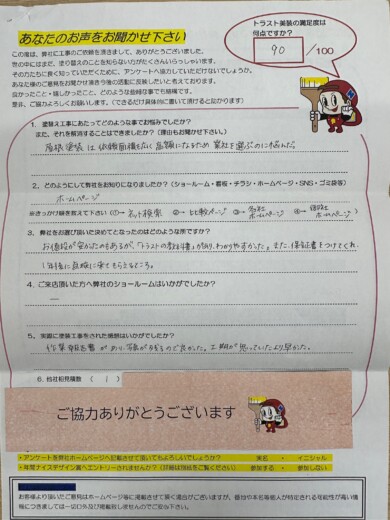 あなたのお声をお聞かせ下さい
トラスト美装の満足度は
何点ですか?
90 /100
この度は、弊社に工事のご依頼を頂きまして、ありがとうございました。
世の中にはまだ、塗り替えのことを知らない方がたくさんいらっしゃいます。
その方たちに良く知っていただくために、アンケートへ協力していただけないでしょうか。
あなた様のご意見をお聞かせ頂き今後の活動に反映したいと考えております。
良かったこと・嬉しかったこと、どのような些細な事でも結構です。
是非、ご協力よろしくお願いします。(できるだけ具体的に書いて頂けると助かります)
1. 塗替え工事にあたってどのような事でお悩みでしたか?
また、それを解消することはできましたか?(理由もお聞かせ下さい。)
屋根塗装は 高額になるため 業社を選ぶのに悩んだ。
2、どのようにして弊社をお知りになりましたか?(ショールーム・看板・チラシ・ホームページ・SNS・ゴミ袋等)
ホームページ
※きっかけ順を教えて下さい(①→ネット検索 ②→比較ページ ③→各社ホームページ ④→御社ホームページ)
3. 弊社をお選び頂いた決めてとなったのはどのような所ですか?
お値段が安かったのもあるが、「トラストの教科書」があり、わかりやすかった。また、保証書をつけてくれ、
1年後に点検に来てもらえるところ。
4. ご来店頂いた方へ弊社のショールームはいかがでしたか?
ー
5、実際に塗装工事をされた感想はいかがでしたか?
作業報告書があり、写真が残るので良かった。工期が思っていたより早かった。
6. 他社相見積数 ( 1 )
ご協力ありがとうございます
・アンケートを弊社ホームページへ記載させて頂いてもよろしいでしょうか? 実名 ・ イニシャル
・年間ナイスデザイン賞へエントリーされませんか?(詳細は別紙をご覧ください) 参加する ・ 参加しない
お客様より頂いたご意見はホームページ等に掲載させて頂く場合がございますが、番地や本名等個人が特定される可能性が高い情
報につきましては一切口外及び掲載致しませんのでご安心下さい。